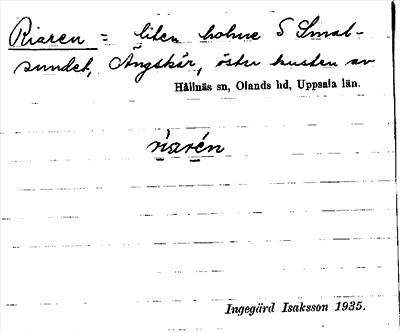 Riaren = liten holme S Smal-
sundet, Ängskär, östra kusten av
Hållnäs sn, Olands hd, Uppsala län.
riarén
Ingegärd Isaksson 1935.